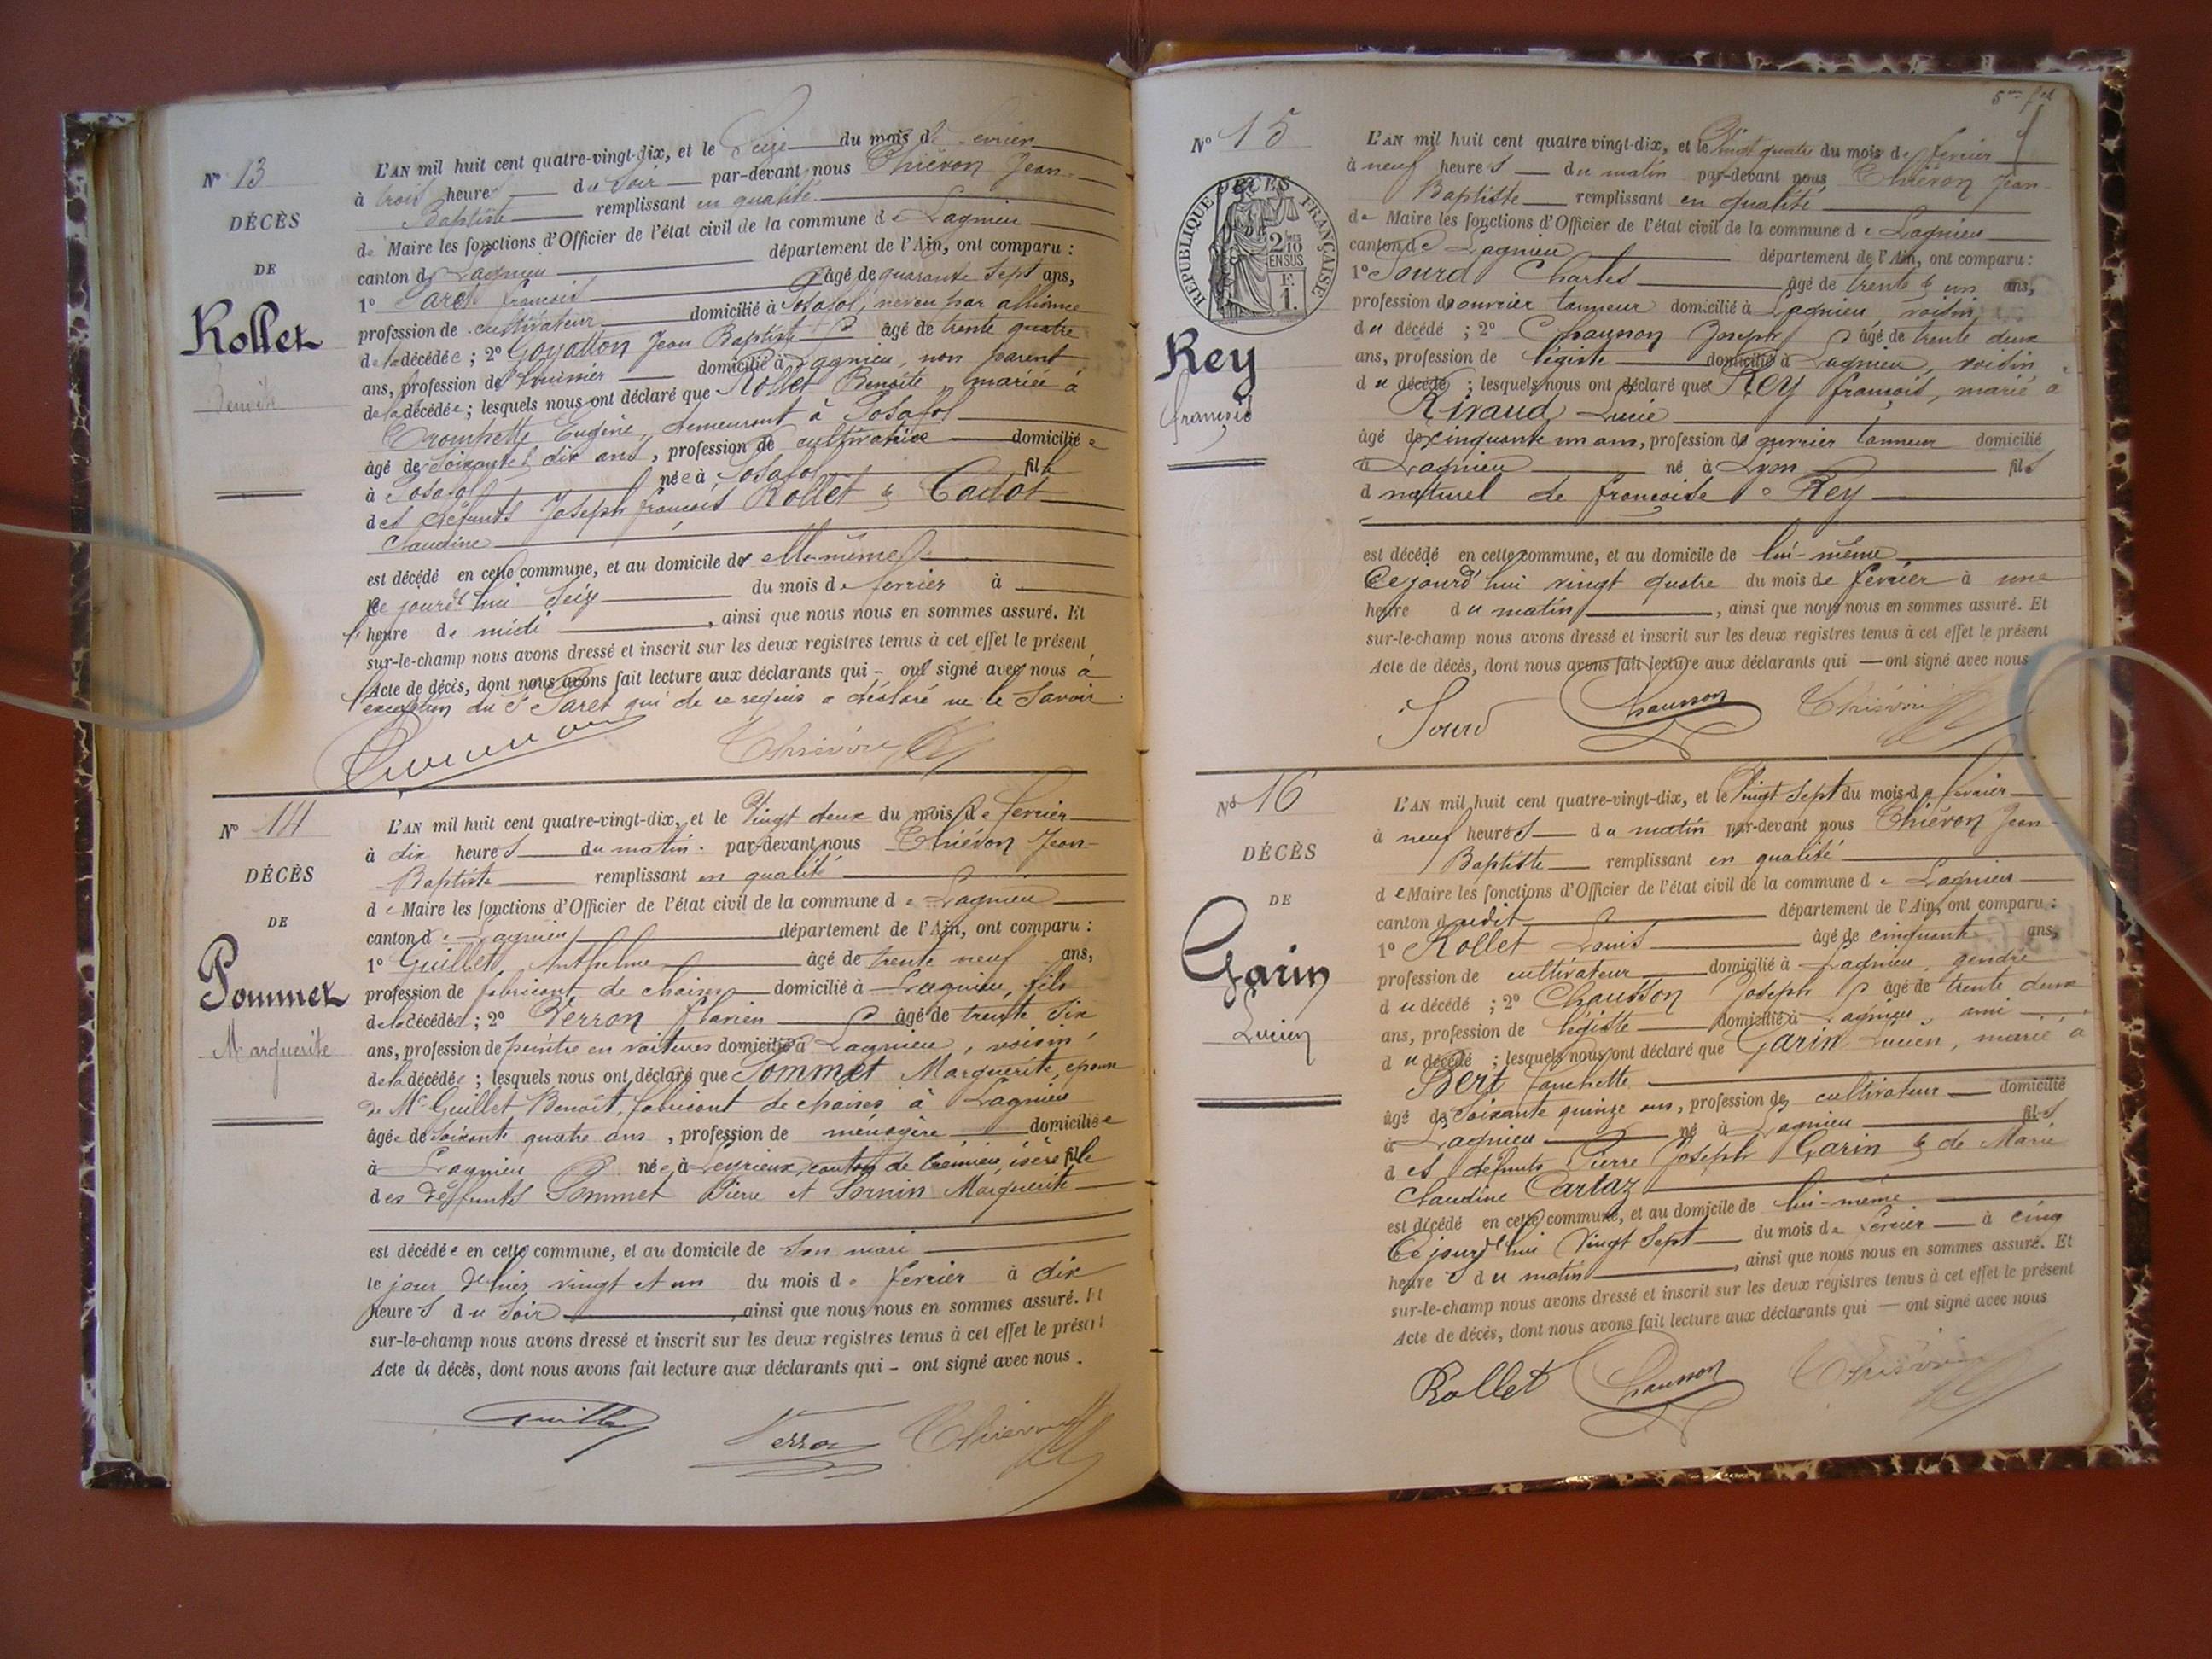 N° 13
DÉCÈS
DE
Rollet
Benoîte
L'AN mil huit cent quatre-vingt-dix, et le Seize du mois de février
à trois heures du Soir par-devant nous Thiévon Jean-
Baptiste remplissant en qualité
de Maire les fonctions d'Officier de l'état civil de la commune de Lagnieu
canton de Lagnieu département de l'Ain, ont comparu :
1° Paret françois âgé de quarante Sept ans,
profession de cultivateur domicilié à Posafol, neveu par alliance
de la décédée ; 2° Goyatton Jean Baptiste âgé de trente quatre
ans, profession de huissier domicilié à Lagnieu, non parent
de la décédée ; lesquels nous ont déclaré que Rollet Benoîte, mariée à
Trombette Eugène, demeurant à Posafol
âgé de Soixante dix ans, profession de cultivatrice domiciliée
à Posafol née à Posafol fille
des défunts Joseph françois Rollet & Cadot
Claudine
est décédé en cette commune, et au domicile de elle-même
Ce jourd'hui Seize du mois de février à
l'heure de midi, ainsi que nous nous en sommes assuré. Et
sur-le-champ nous avons dressé et inscrit sur les deux registres tenus à cet effet le présent
Acte de décès, dont nous avons fait lecture aux déclarants qui – ont signé avec nous à
l'exception du S Paret qui de ce requis a déclaré ne le Savoir.
Thiévon
N° 14
DÉCÈS
DE
Pommet
Marguerite
L'AN mil huit cent quatre-vingt-dix, et le Vingt deux du mois de fevrier
à dix heures du matin par-devant nous Thiévon Jean-
Baptiste remplissant en qualité
de Maire les fonctions d'Officier de l'état civil de la commune de Lagnieu
canton de Lagnieu département de l'Ain, ont comparu :
1° Guillet Anthelme âgé de trente neuf ans,
profession de fabricant de chaises domicilié à Lagnieu, fils
de la décédée ; 2° Perron flavien âgé de trente Six
ans, profession de peintre en voitures domicilié à Lagnieu, voisin
de la décédée ; lesquels nous ont déclaré que Pommet Marguerite, epouse
de Mr Guillet Benoît, fabricant de chaises à Lagnieu
âgée de Soixante quatre ans, profession de ménagère domiciliée
à Lagnieu née à Leyrieux, canton de Crémieu, isère fille
des déffunts Pommet Pierre et Sornin Marguerite
est décédée en cette commune, et au domicile de Son mari
le jour d'hier vingt et un du mois de fevrier à dix
heures du Soir, ainsi que nous nous en sommes assuré. Et
sur-le-champ nous avons dressé et inscrit sur les deux registres tenus à cet effet le présent
Acte de décès, dont nous avons fait lecture aux déclarants qui – ont signé avec nous.
Guillet Perron Thiévon
N° 15
RÉPUBLIQUE FRANÇAISE
DÉCÈS
DE
2/10 EN SUS
1 F.
Rey
françois
L'AN mil huit cent quatre vingt-dix, et le Vingt quatre du mois de février
à neuf heures du matin par-devant nous Thiévon Jean-
Baptiste remplissant en qualité
de Maire les fonctions d'Officier de l'état civil de la commune de Lagnieu
canton de Lagnieu département de l'Ain, ont comparu :
1° Sourd Charles âgé de trente & un ans,
profession d'ouvrier tanneur domicilié à Lagnieu, voisin
du décédé ; 2° Chausson Joseph âgé de trente deux
ans, profession de légiste domicilié à Lagnieu, voisin
du décédé ; lesquels nous ont déclaré que Rey françois, marié à
Rivaud Lucie
âgé de cinquante un ans, profession de ouvrier tanneur domicilié
à Lagnieu né à Lyon fils
d naturel de françoise Rey
est décédé en cette commune, et au domicile de lui-même
Ce jourd'hui vingt quatre du mois de fevrier à une
heure du matin, ainsi que nous nous en sommes assuré. Et
sur-le-champ nous avons dressé et inscrit sur les deux registres tenus à cet effet le présent
Acte de décès, dont nous avons fait lecture aux déclarants qui — ont signé avec nous
Sourd Chausson Thiévon
N° 16
DÉCÈS
DE
Garin
Lucien
L'AN mil huit cent quatre-vingt-dix, et le Vingt Sept du mois de février
à neuf heures du matin par-devant nous Thiévon Jean-
Baptiste remplissant en qualité
de Maire les fonctions d'Officier de l'état civil de la commune de Lagnieu
canton dudit département de l'Ain, ont comparu :
1° Rollet Louis âgé de cinquante ans,
profession de cultivateur domicilié à Lagnieu, gendre
du décédé ; 2° Chausson Joseph âgé de trente deux
ans, profession de légiste domicilié à Lagnieu, ami
du décédé ; lesquels nous ont déclaré que Garin Lucien, marié à
Bert fanchette
âgé de Soixante quinze ans, profession de cultivateur domicilié
à Lagnieu né à Lagnieu fils
des défunts Pierre Joseph Garin & de Marie
Claudine Cartaz
est décédé en cette commune, et au domicile de lui-même
Ce jourd'hui Vingt Sept du mois de fevrier à cinq
heures du matin, ainsi que nous nous en sommes assuré. Et
sur-le-champ nous avons dressé et inscrit sur les deux registres tenus à cet effet le présent
Acte de décès, dont nous avons fait lecture aux déclarants qui — ont signé avec nous
Rollet Chausson Thiévon